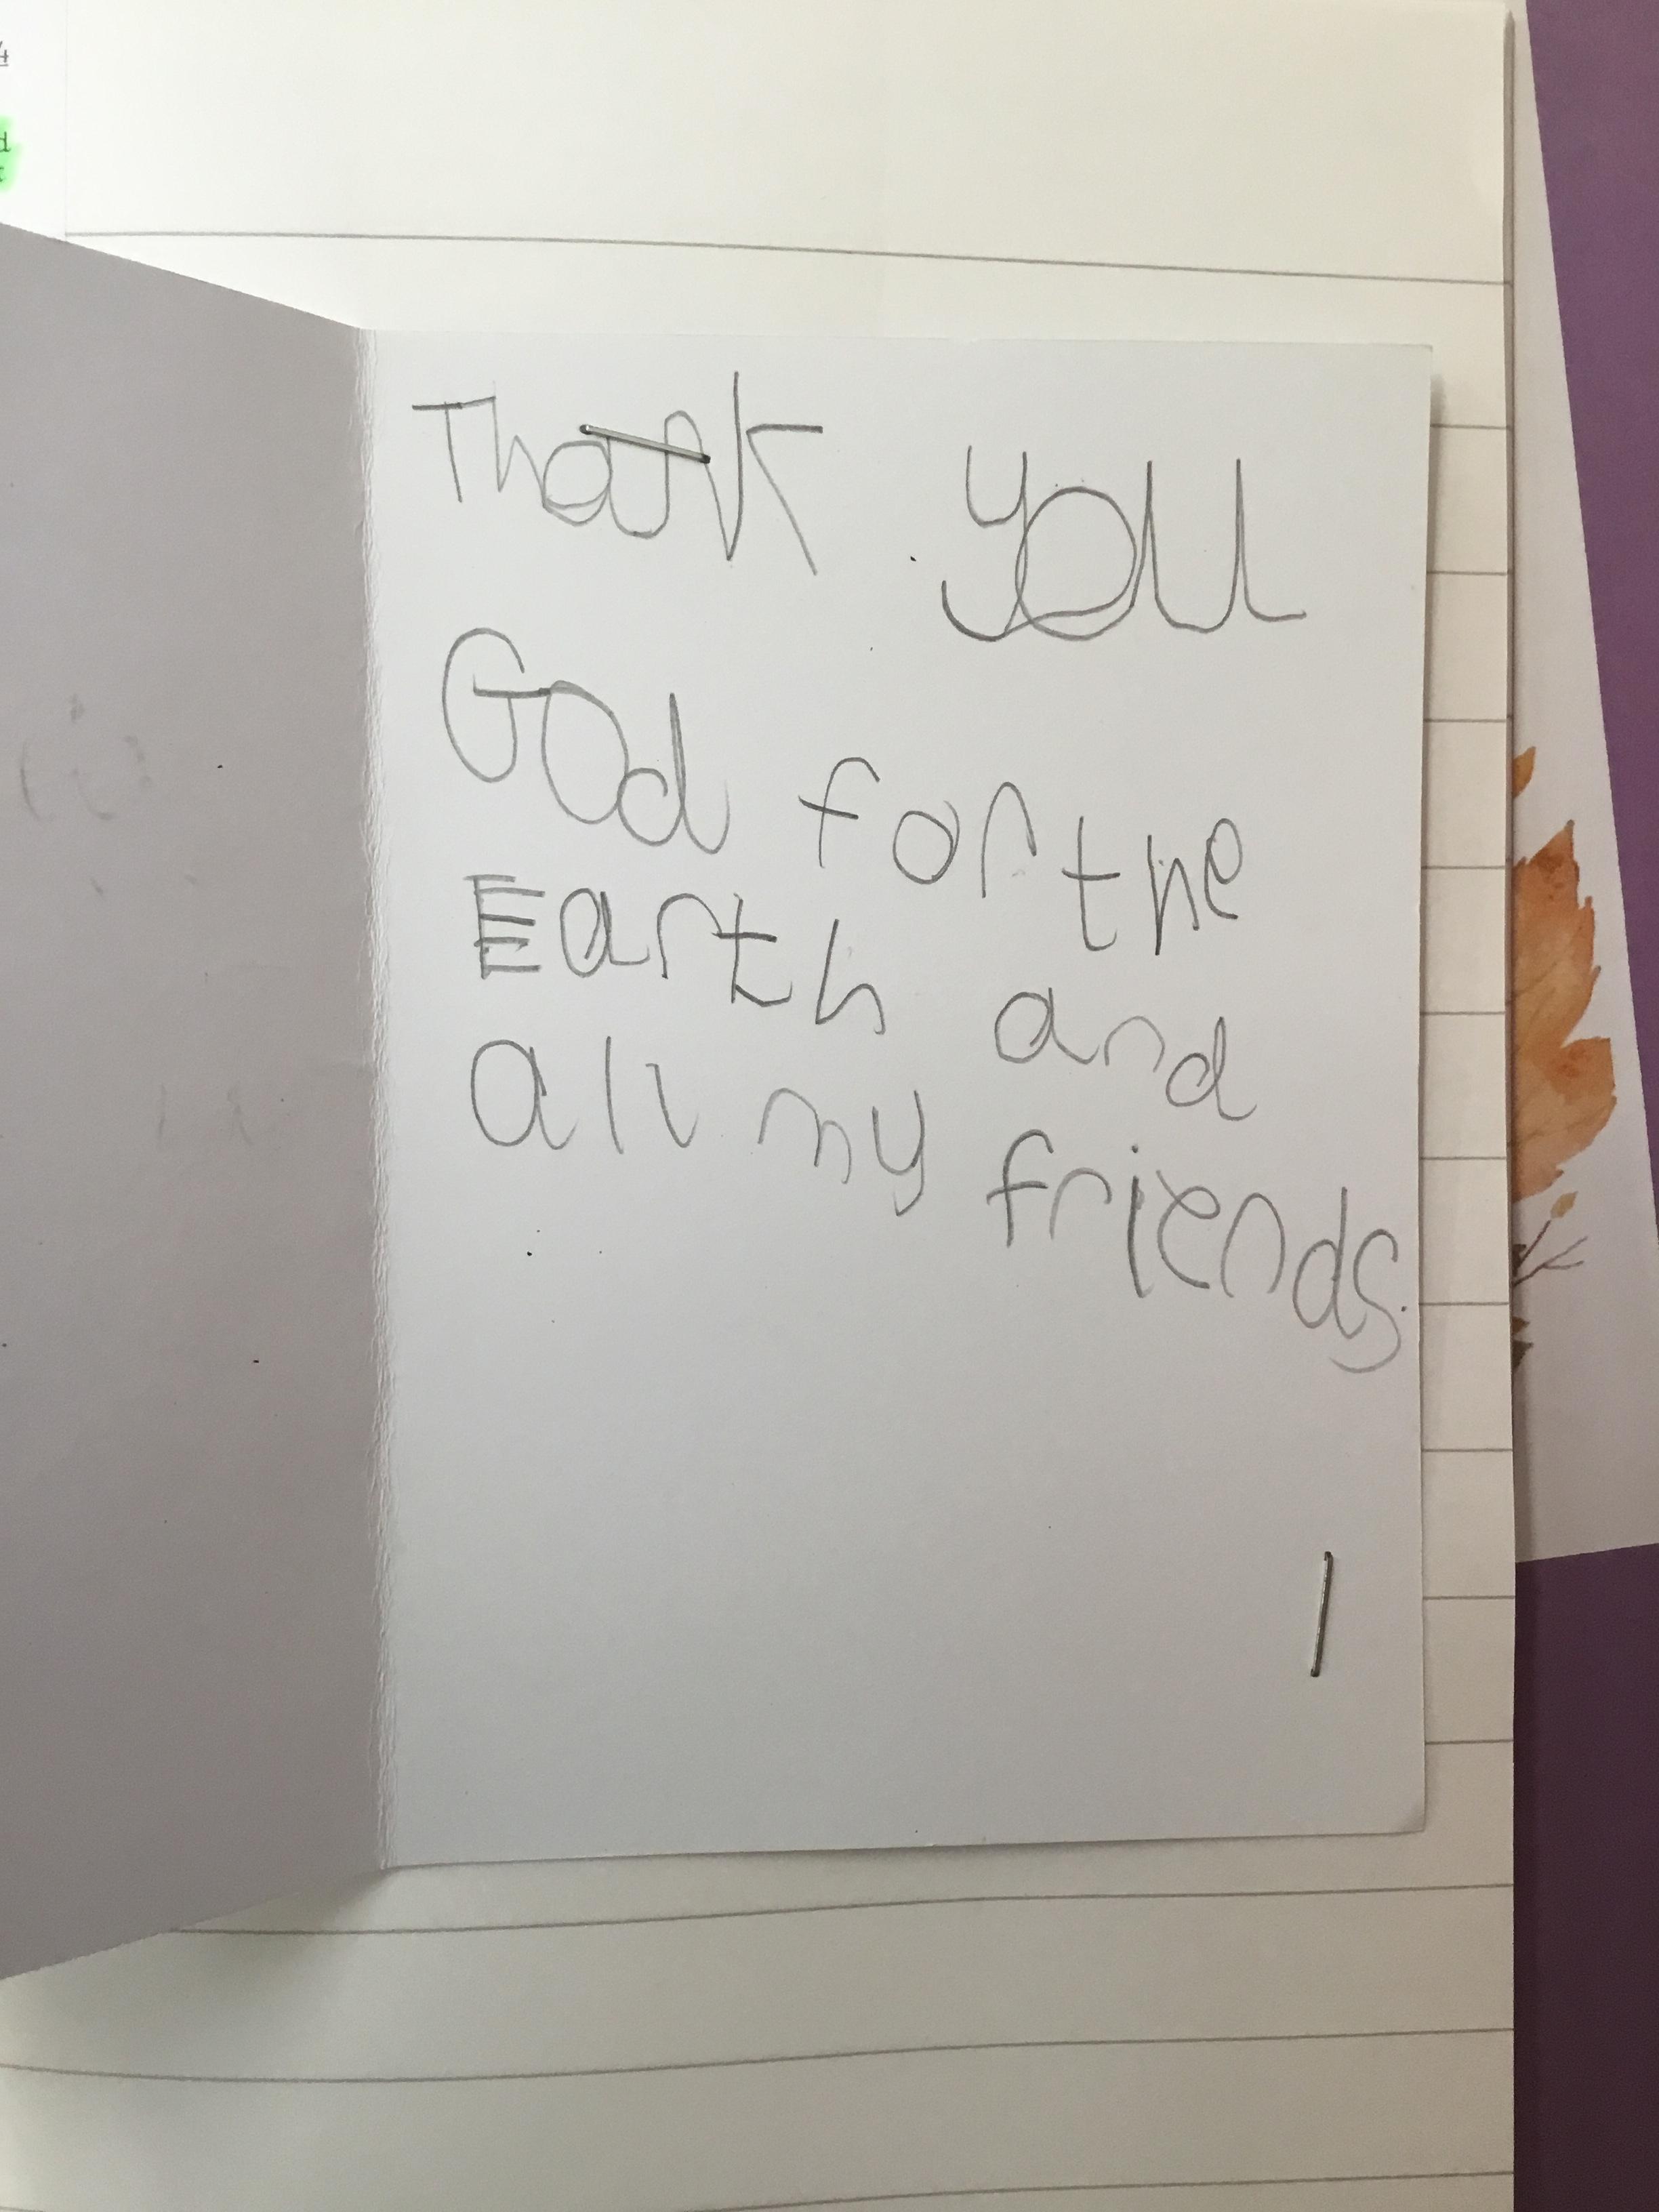 Thank you
God for the
Earth and
all my friends.